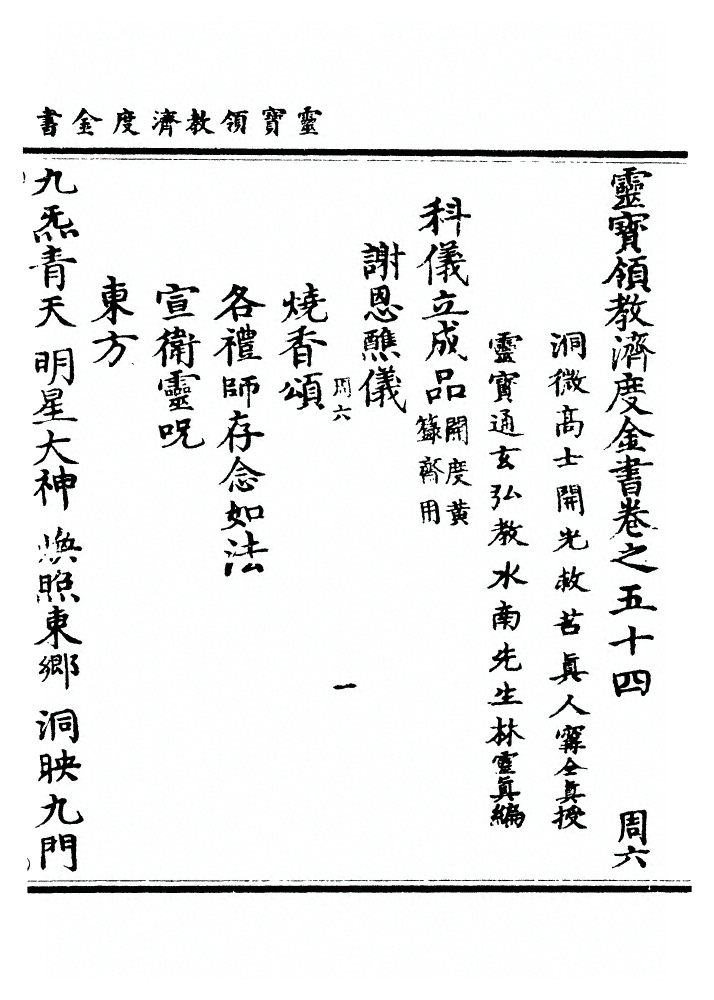 靈寶領教濟度金書
靈寶領教濟度金書卷之五十四 周六
洞微高士開光救苦眞人甯全眞授
靈寶通玄弘教水南先生林靈眞編
科儀立成品開度黃籙齋用
謝恩醮儀
周六 一
燒香頌
各禮師存念如法
宣衛靈呪
東方
九炁青天 明星大神 煥照東鄉 洞映九門